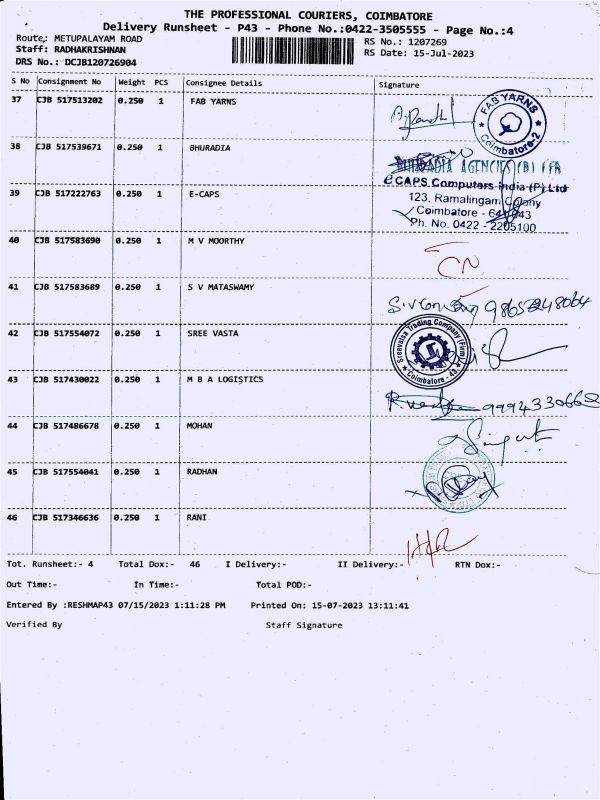 THE PROFESSIONAL COURIERS, COIMBATORE
Delivery Runsheet - P43 - Phone No.:0422-3505555 - Page No.:4
Route: METUPALAYAM ROAD
RS No.: 1207269
Staff: RADHAKRISHNAN
RS Date: 15-Jul-2023
DRS No.: DCJB120726904
S No Consignment No Weight PCS Consignee Details Signature
37 CJB 517513202 0.250 1 FAB YARNS
FAB YARNS
Coimbatore-2
38 CJB 517539671 0.250 1 BHURADIA
BHURADIA AGENCIES
39 CJB 517222763 0.250 1 E-CAPS
eCAPS Computers India (P) Ltd
123, Ramalingam Colony
Coimbatore - 641043
Ph. No. 0422 - 2205100
40 CJB 517583690 0.250 1 M V MOORTHY
CN
41 CJB 517583689 0.250 1 S V MATASWAMY
42 CJB 517554072 0.250 1 SREE VASTA
Sreevatsa Trading Company (Firm)
Coimbatore - 43
43 CJB 517430022 0.250 1 M B A LOGISTICS
44 CJB 517486678 0.250 1 MOHAN
45 CJB 517554041 0.250 1 RADHAN
46 CJB 517346636 0.250 1 RANI
Tot. Runsheet:- 4 Total Dox:- 46 I Delivery:- II Delivery:- RTN Dox:-
Out Time:- In Time:- Total POD:-
Entered By :RESHMAP43 07/15/2023 1:11:28 PM Printed On: 15-07-2023 13:11:41
Verified By Staff Signature